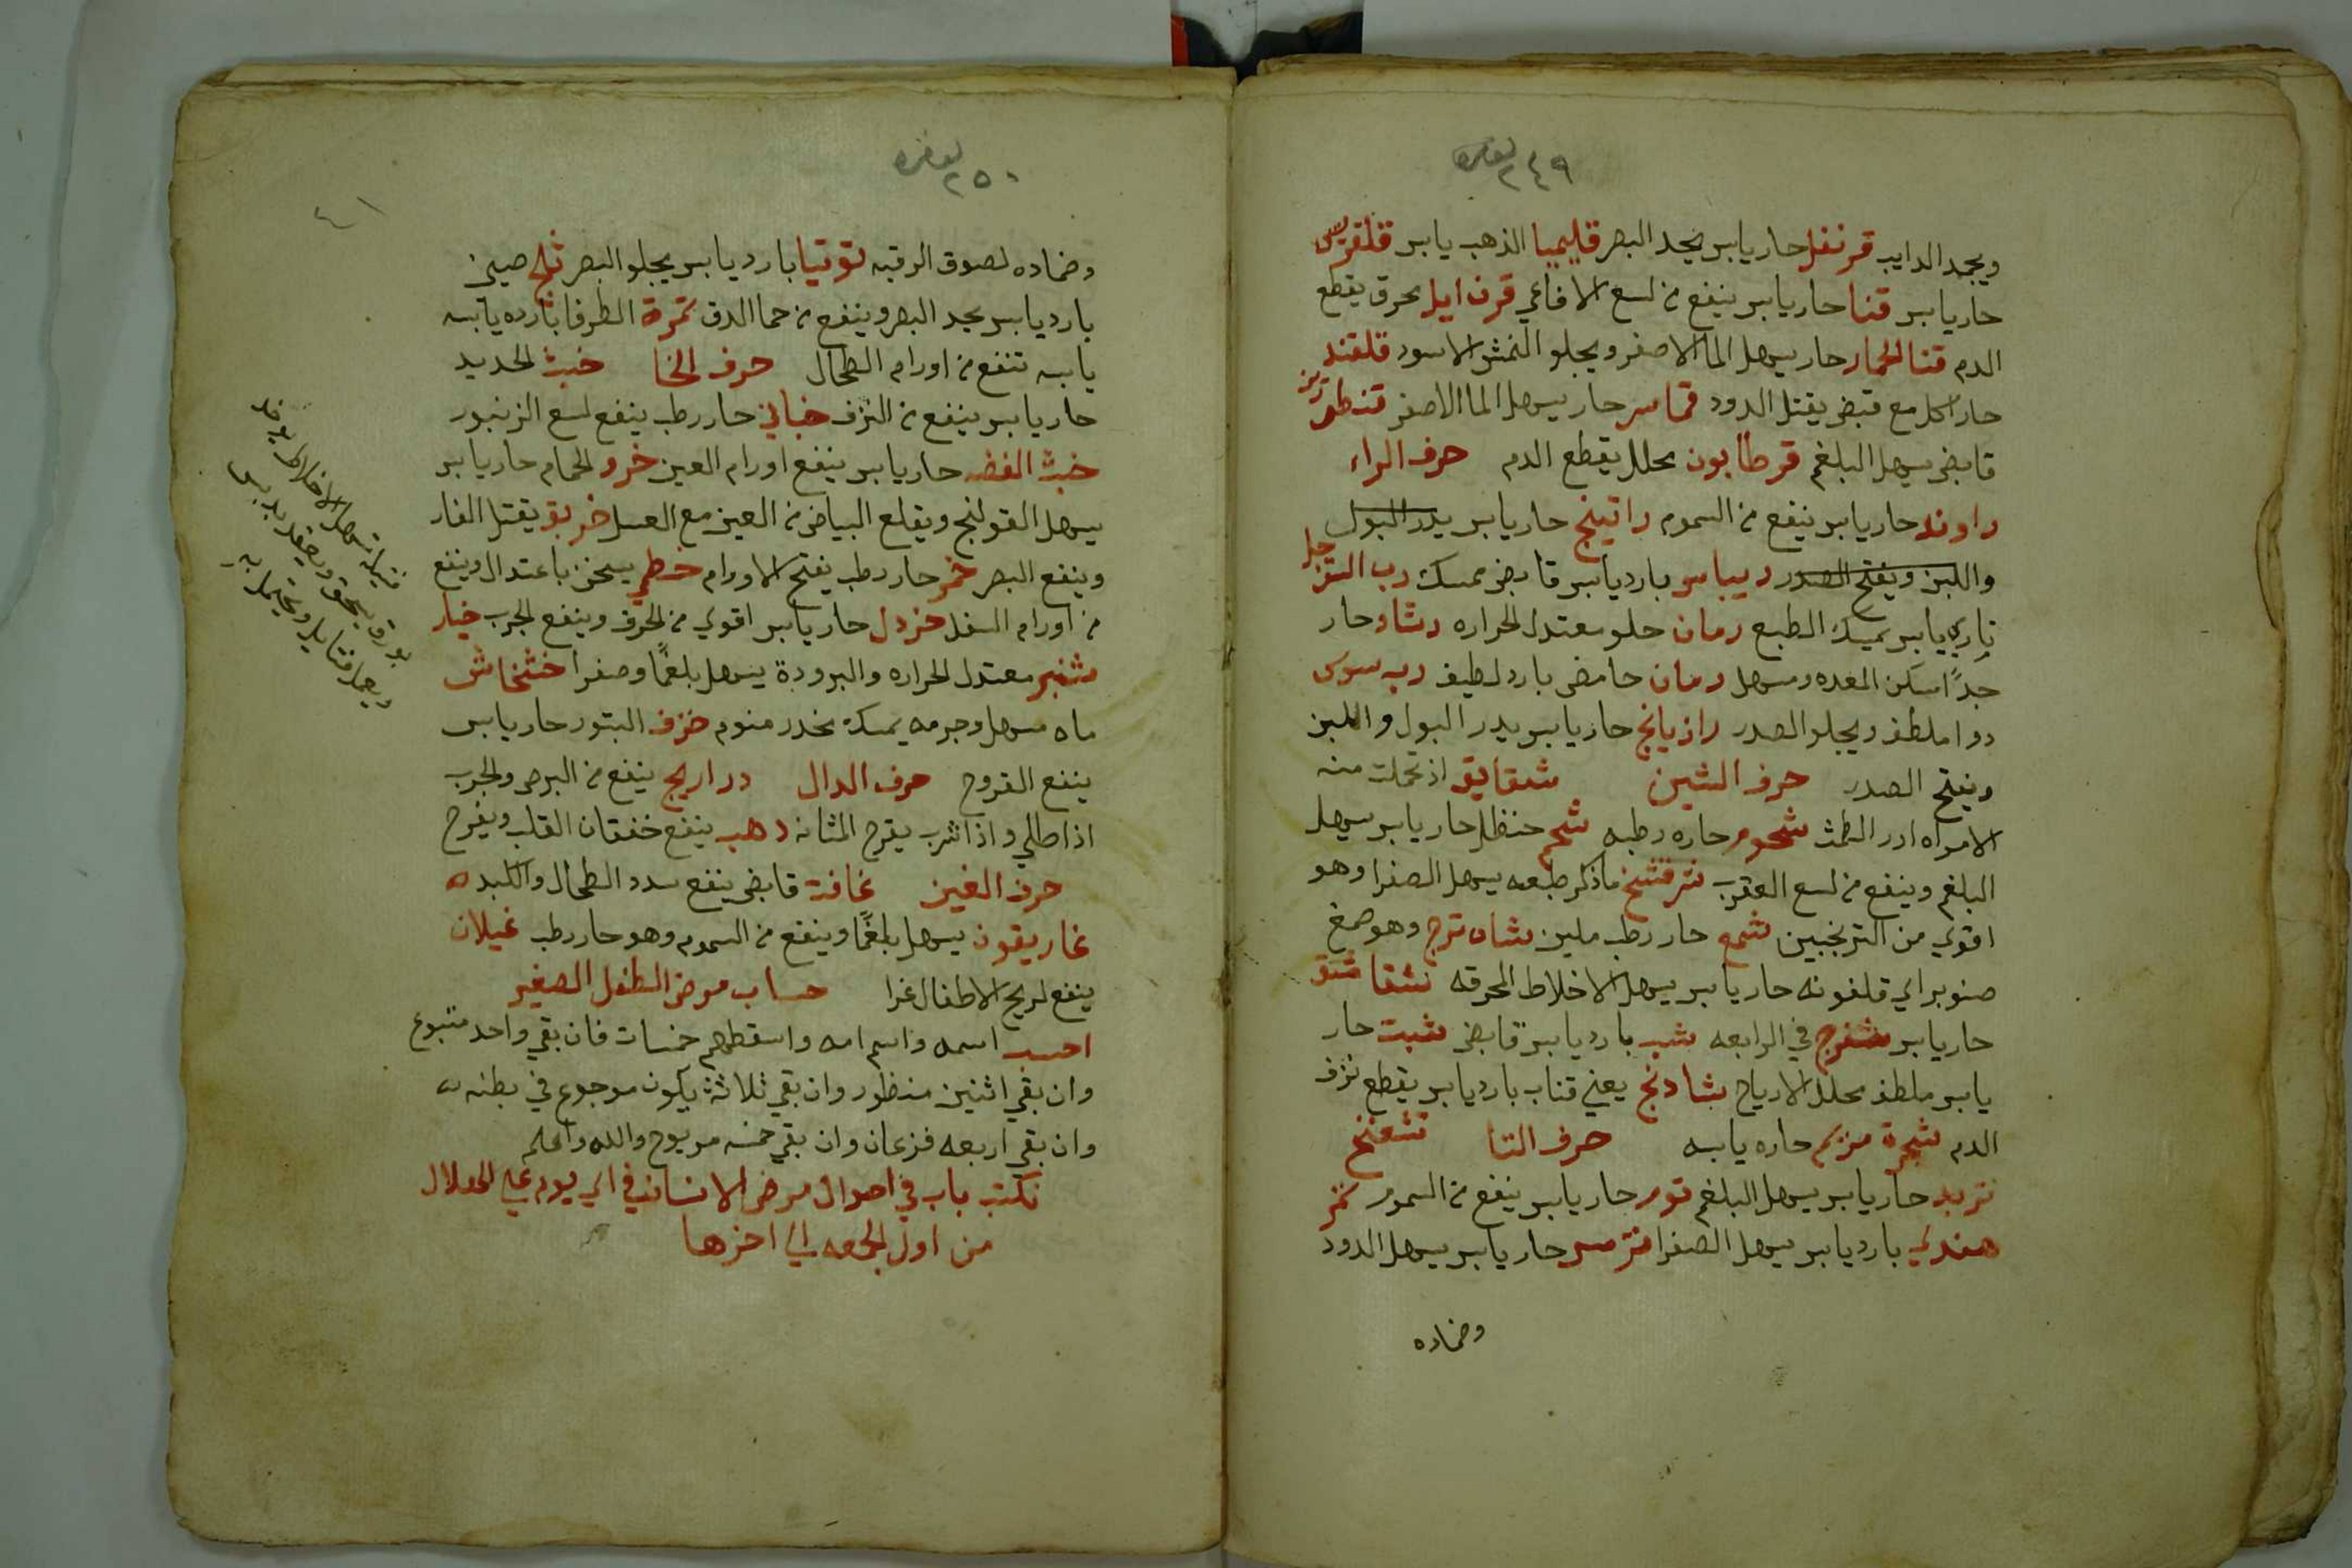 ٢٤٩
ويجمد الدايب قرنفل حار يابس يحد البصر قليميا الذهب يابس قلقديس
حار يابس قنا حار يابس ينفع من لسع الافاعي قرن ايل يحرق يقطع
الدم قنا الحمار حار يسهل الما الاصفر ويجلو النمش الاسود قلقند
حار اكل مع قبض يقتل الدود حار يسهل الما الاصفر
قابض يسهل البلغم يحلل يقطع الدم حرف الراء
راوند حار يابس ينفع من السموم راتينج حار يابس يدر البول
واللبن ويفتح الصدر ريباس بارد يابس قابض ممسك رب السفرجل
ناري يابس يمسك الطبع رمان حلو معتدل الحراره رشاد حار
جدًا اسكن المعده ومسهل رمان حامض بارد لطيف رب سوس
دوا ملطف ويجلو الصدر رازيانج حار يابس يدر البول واللبن
ويفتح الصدر حرف الشين شقايق اذ تحملت منه
الامراه ادر الطمث شحوم حاره رطبه شحم حنظل حار يابس يسهل
البلغم وينفع من لسع العقرب ماذكر طبعه يسهل الصفرا وهو
اقوي من الترنجبين شمع حار رطب ملين وهو صمغ
صنوبر اي قلفونه حار يابس يسهل الاخلاط المحرقه
حار يابس في الرابعه شب بارد يابس قابض شبت حار
يابس ملطف محلل الارياح شادنج يعني بارد يابس يقطع نزف
الدم شجرة مريم حاره يابسه حرف التا
تربد حار يابس يسهل البلغم توم حار يابس ينفع من السموم تمر
هندي بارد يابس يسهل الصفرا ترمس حار يابس يسهل الدود
وضماده
٢٥٠
٤١
وضماده لصوق الرقبه توتيا بارد يابس يجلو البصر ثلج صيني
بارد يابس يحد البصر وينفع من حما الدق تمرة الطرفا بارده يابسه
يابسه تنفع من اورام الطحال حرف الخا خبث الحديد
حار يابس ينفع من النزف خبازي حار رطب ينفع لسع الزنبور
خبث الفضه حار يابس ينفع اورام العين خرو الحمام حار يابس
يسهل القولنج ويقلع البياض من العين مع العسل خربق يقتل الفار
وينفع البصر خمر حار رطب يفتح الاورام خطمي يسخن باعتدال وينفع
من اورام السفل خردل حار يابس اقوي من الحرف وينفع الجرب خيار
شنبر معتدل الحراره والبرودة يسهل بلغمًا وصفرا خشخاش
ماه مسهل وجرمه يمسك يخدر منوم خزف التنور حار يابس
ينفع القروح حرف الدال دراريح ينفع من البرص والجرب
اذا طلي واذا شرب يقرح المثانه دهب ينفع خفقان القلب ويفرح
حرف الغين غافت قابض ينفع سدد الطحال والكبد
غاريقون يسهل بلغمًا وينفع من السموم وهو حار رطب غيلان
ينفع لريح الاطفال غرا حساب مرض الطفل الصغير
احسب اسمه واسم امه واسقطهم خمسات فان بقي واحد متبوع
وان بقي اثنين منظور وان بقي ثلاثة يكون موجوع في بطنه
وان بقي اربعه فزعان وان بقي خمسه مريوح والله اعلم
نكتب باب في احوال مرض الانسان في اي يوم علي الحلال
من اول الجمعه الي اخرها
فتيله تسهل الاخلاط يوخذ
بورق يسحق ويعقد بدبس
ويعمل فتايل ويحتمل به